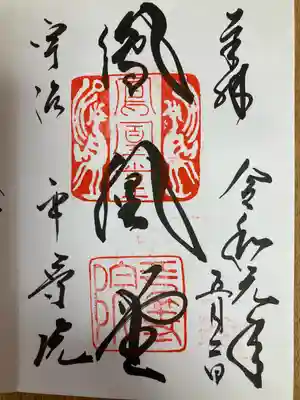 奉拝
令和元年
五月二日
鳳凰堂
鳳凰堂
宇治 平等院